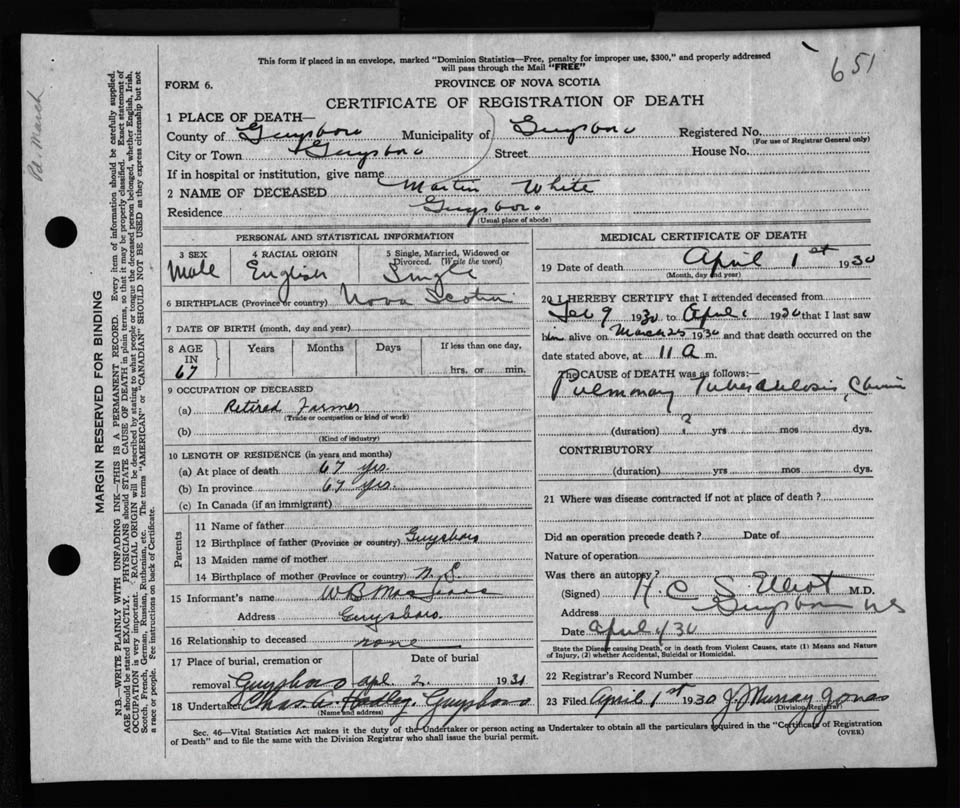 651
This form if placed in an envelope, marked "Dominion Statistics—Free, penalty for improper use, $300," and properly addressed
will pass through the Mail "FREE"
FORM 6.
PROVINCE OF NOVA SCOTIA
CERTIFICATE OF REGISTRATION OF DEATH
1 PLACE OF DEATH—
County of Guysboro Municipality of Guysboro Registered No.
(For use of Registrar General only)
City or Town Guysboro Street House No.
If in hospital or institution, give name
2 NAME OF DECEASED Martin White
Residence Guysboro
(Usual place of abode)
PERSONAL AND STATISTICAL INFORMATION
3 SEX 4 RACIAL ORIGIN 5 Single, Married, Widowed or
Divorced. (Write the word)
Male English Single
6 BIRTHPLACE (Province or country) Nova Scotia
7 DATE OF BIRTH (month, day and year)
8 AGE IN Years Months Days If less than one day,
67 hrs. or min.
9 OCCUPATION OF DECEASED
(a) Retired Farmer
(Trade or occupation or kind of work)
(b)
(Kind of industry)
10 LENGTH OF RESIDENCE (in years and months)
(a) At place of death 67 yrs.
(b) In province 67 yrs.
(c) In Canada (if an immigrant)
Parents
11 Name of father
12 Birthplace of father (Province or country) Guysboro
13 Maiden name of mother
14 Birthplace of mother (Province or country) N. S.
15 Informant's name W B
Address Guysboro.
16 Relationship to deceased none
17 Place of burial, cremation or Date of burial
removal Guysboro apl. 2 1930
18 Undertaker Chas. A. Hadley. Guysboro
(Name and address)
MEDICAL CERTIFICATE OF DEATH
19 Date of death April 1st 1930
(Month, day and year)
20 I HEREBY CERTIFY that I attended deceased from
Feb 9 1930 to April 1 1930 that I last saw
him alive on March 25 1930 and that death occurred on
date stated above, at 11 a m.
The CAUSE OF DEATH was as follows:—
Pulmonary Tuberculosis, Chronic
(duration) ? yrs mos dys.
CONTRIBUTORY
(duration) yrs mos dys.
21 Where was disease contracted if not at place of death?
Did an operation precede death? Date of
Nature of operation
Was there an autopsy?
(Signed) H. C. S. Elliot M.D.
Address Guysboro NS
Date April 1/30
State the Disease causing Death, or in death from Violent Causes, state (1) Means and Nature
of Injury, (2) whether Accidental, Suicidal or Homicidal.
22 Registrar's Record Number
23 Filed April 1st 1930 J. Murray Jonas
(Division Registrar)
Sec. 46—Vital Statistics Act makes it the duty of the Undertaker or person acting as Undertaker to obtain all the particulars required in the "Certificate of Registration
of Death" and to file the same with the Division Registrar who shall issue the burial permit.
(OVER)
MARGIN RESERVED FOR BINDING
N.B.—WRITE PLAINLY WITH UNFADING INK—THIS IS A PERMANENT RECORD. Every item of information should be carefully supplied.
AGE should be stated EXACTLY. PHYSICIANS should STATE CAUSE OF DEATH in plain terms, so that it may be properly classified. Exact statement of
OCCUPATION is very important. RACIAL ORIGIN will be described by stating to what people or tongue the deceased person belonged, whether English, Irish,
Scotch, French, German, Russian, Ruthenian, etc. The terms "AMERICAN" or "CANADIAN" SHOULD NOT BE USED as they express citizenship but not
a race or people. See instructions on back of Certificate.